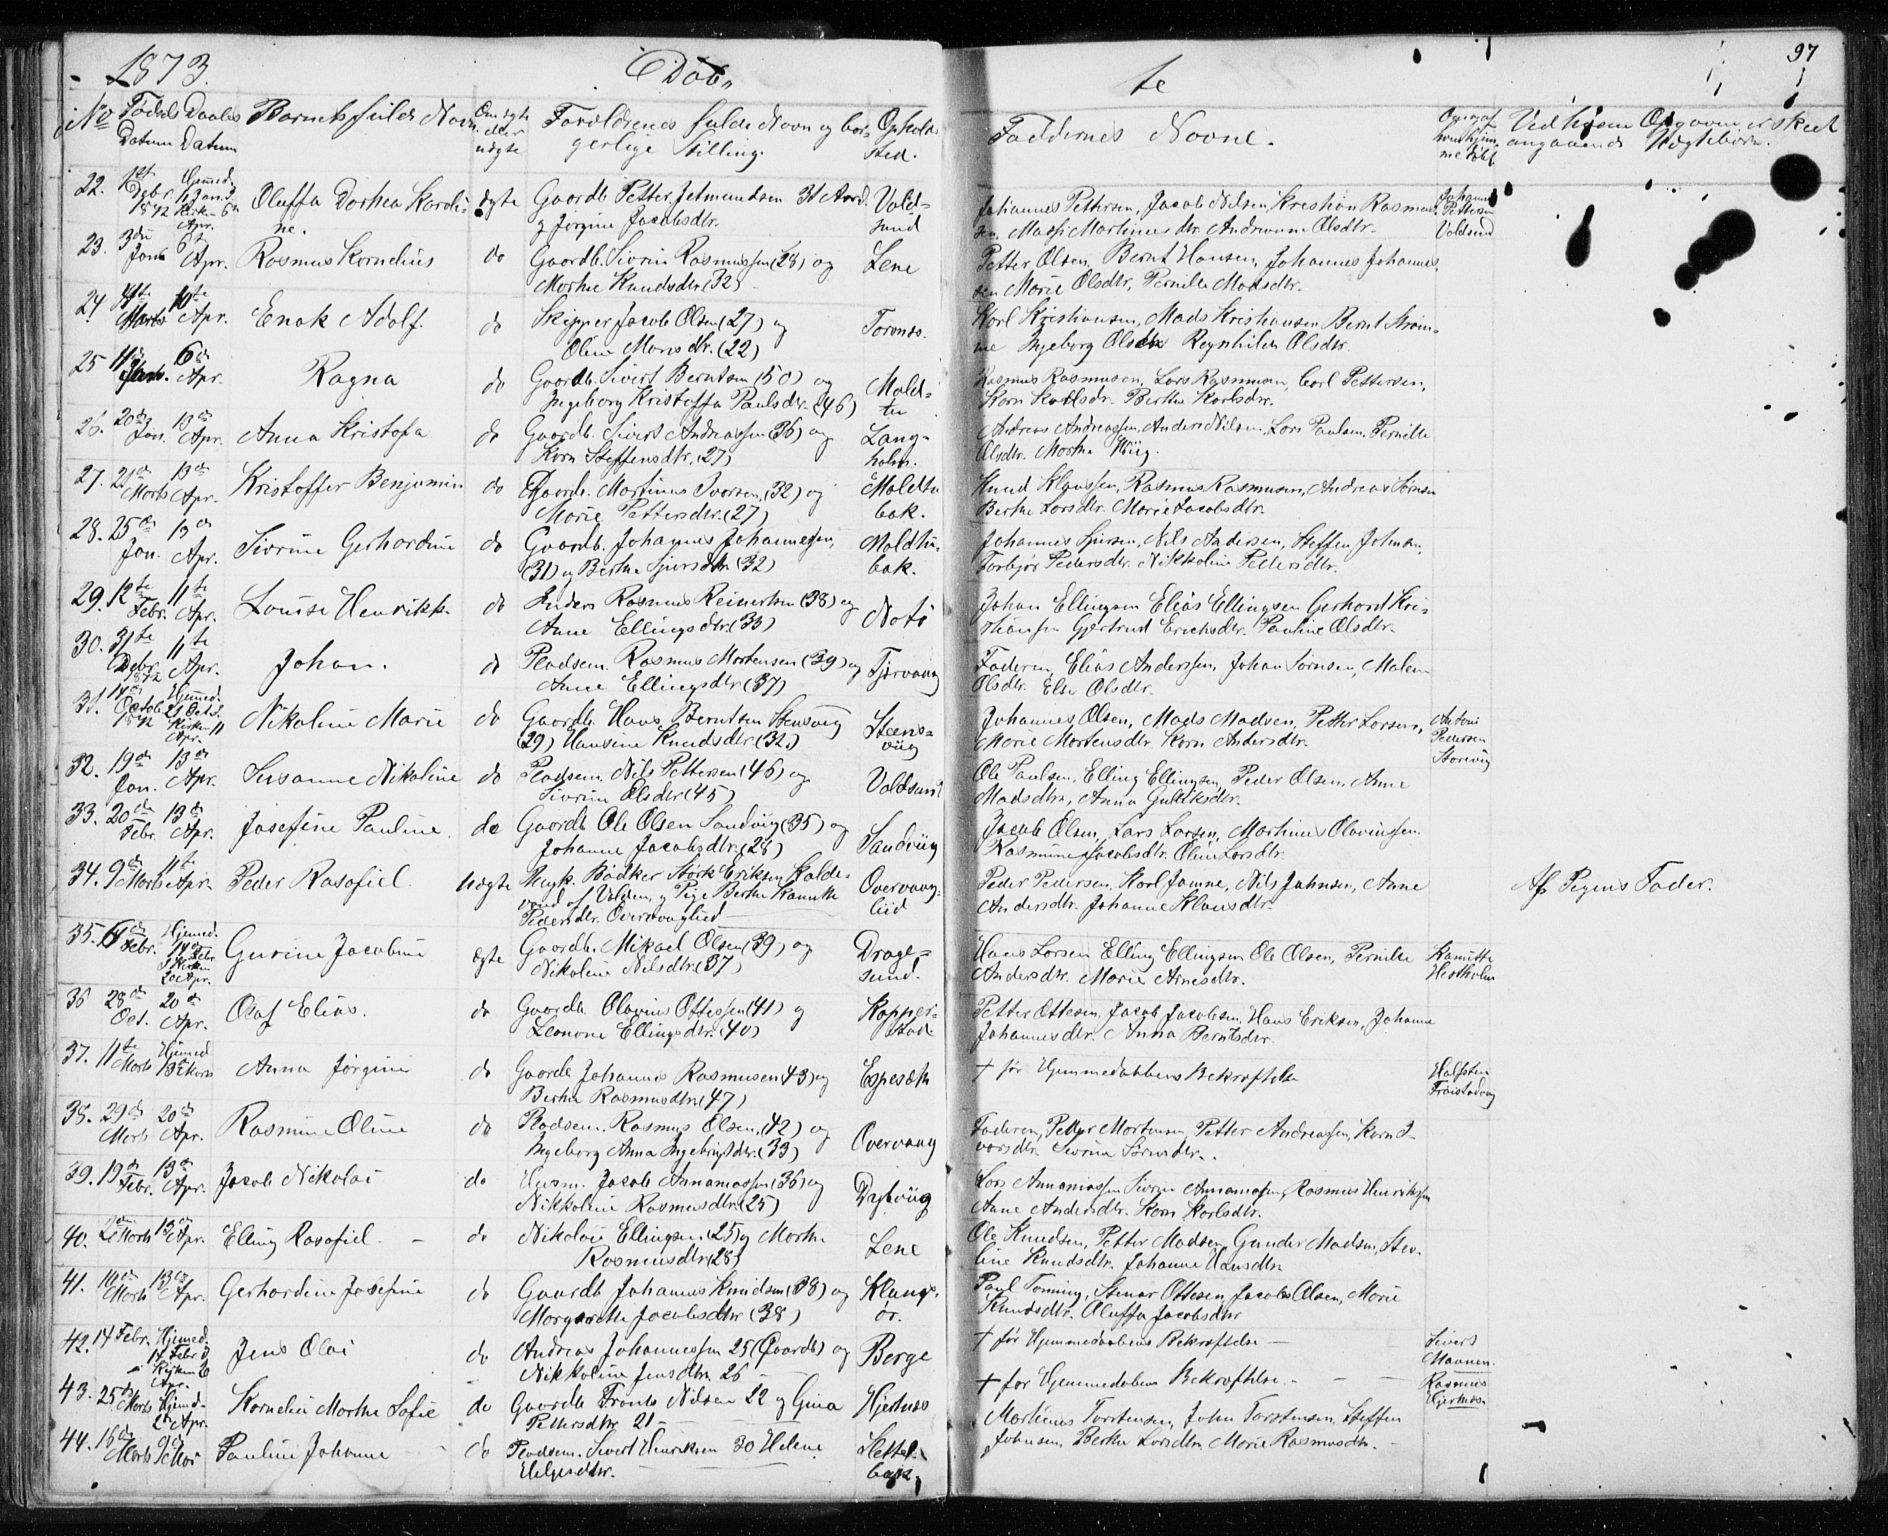 1873. Døb„ te 97
No Fødsels Datum Daabs Datum Barnets fulde Navn Om ægte eller uægte Forældrenes fulde Navn og borgerlige Stilling. Opholds Sted. Faddernes Navne. Ved hvem Opgaven er skeet angaaende Uægtebørn.
22. Debr. 1872 Hjemmed. Jan. Kirken 6 Apr. Oluffa Dorthea Karoli- ægte Gaardb. Petter Jetmundsen 31 Aar Vold- Johannes Pettersen, Jacob Nilsen, Kristian Rasmus- Johannes
ne. og Jørgine Jacobsdtr. sund sen, Martinusdtr. Olsdtr. Pettersen Voldsund
23. 3die Jan. 6te Apr. Rasmus Kornelius do Gaardb. Sivrin Rasmussen (28) og Lene Petter Olsen, Bernt Hansen, Johannes Johannes-
Marthe Knudsdtr. (32) sen Marie Olsdtr, Pernille Madsdtr.
24. 4te Marts 10te Apr. Enok Adolf. do Skipper Jacob Olsen (27) og Karl Kristiansen, Mads Kristiansen Bernt Strøm-
Oline Marie dtr. (22) me Ingeborg Olsdtr Reynhild Olsdtr.
25 11te 6te Apr. Ragna do Gaardb. Sivert Berntsen (50) og Mold- Rasmus Rasmusen, Lars Rasmusen, Carl Pettersen,
Ingeborg Kristoffa Paulsdtr. (46) tu Karn Karlsdr. Berthe Karlsdtr.
26. 20de Jan. 13de Apr. Anna Kristofa do Gaardb. Sivert Andreassen (36) og Lang- Andreas Andreassen, Anders Nilsen, Lars Paulsen, Pernille
Karn Steffensdtr. (27) holm. Olsdtr. Marthe
27. 21de Marts 13de Apr. Kristoffer Benjamin do Gaardb. Martinus Ivarsen, (32) og Moldtu Knud Klausen, Rasmus Rasmusen, Andreas
Marie Pettersdtr. (27) bak. Berthe Larsdtr. Marie Jacobsdtr.
28. 25de Jan. 13de Apr. Sivrine Gerhardine do Gaardb. Johannes Johannesen, Moldtu- Johannes Sjursen, Nils Andersen, Steffen Johnsen,
(31) og Berthe Sjursdtr. (32) bak. Torbjør Pedersdtr. Nikkoline Pedersdtr.
29. 12te Febr. 11te Apr. Louise Henrikke do Anders Rasmus Reinertsen (38) og Notø Johan Ellingsen Elias Ellingsen Gerhard Kris-
Anne Ellingsdtr. (33) tiansen Gjertrud Erichsdtr. Pauline Olsdtr.
30. 31te Debr. 1872 11te Apr. Johan. do Pladsem. Rasmus Mortensen (39) og Tjørvaag Faderen, Elias Anderssen, Johan Sørnsen, Malen
Anne Ellingsdtr. (37) Olsdtr. Else Olsdtr.
31. 14de Octob. 1872 Hjemmed. Kirken 11 Apr. Nikoline Marie do Gaardb. Hans Berntsen Stensvig Steens- Johannes Olsen, Mads Madsen, Petter Larsen, Antoni
(29) Hansine Knudsdtr. (32.) viig Marie Mortensdtr. Karn Andersdtr. Pedersen Storevig
32. 19de Jan. 13de Apr. Susanne Nikoline do Pladsem. Nils Pettersen (46) og Voldsund Ole Paulsen, Elling Ellingsen, Peder Olsen, Anne
Sivrine Olsdtr. (45) Madsdtr., Anna
33. 20de Febr. 13de Apr. Josefine Pauline. do Gaardb. Ole Olsen Sandviig (35) og Sandviig Jacob Olsen, Lars Larsen, Martinus Olavinssen
Johanne Jacobsdtr. (28) Rasmine Jacobsdtr. Oline Larsdtr.
34. 9de Marts 11te Apr. Peder Rasafiel. Uægte Ungk. Bødker Størk Eriksen Kalde- Overvaag- Peder Pedersen, Karl Janne, Nils Johnsen, Anne Af Pigens Fader.
vand af Volden og Pige Berthe Kanutte liid Andersdtr. Johanne Klausdtr.
Pedersdtr. Overvaaglied
35. Febr. Hjemmed. Febr. Kirken 20 Apr. Gurine Jacobine ægte Gaardb. Mikael Olsen (39) og Drage- Hans Larsen Elling Ellingsen Ole Olsen, Pernille Kanutte
Nikoline Nilsdtr. (37) sund. Andersdtr. Marie Arnesdtr. Hestholm
36 28de Oct. 20de Apr. Olaf Elias. do Gaardb. Olavius Ottesen (41) og Kopper- Petter Ottesen, Jacob Jacobsen, Hans Eriksen, Johanne
Leonore Ellingsdtr. (40) stad Johannesdtr. Anna Berntsdtr.
37. 11te Marts Hjemmed 13de Marts Anna Jørgine do Gaardb Johannes Rasmusen 43) og Espesæth † før Hjemmedaabens Bekræftelse Halfsten
Berthe Rasmusdtr. (47)
38. 29de Marts 20de Apr. Rasmine Oline do Pladsem. Rasmus Olsen, (42) og Overvaag Faderen, Petter Mortensen, Petter Andreassen, Karn I-
Ingeborg Anna Ingebrigtsdtr. (33) varsdtr. Sivrine Sørnsdtr.
39. 19de Febr. 13de Apr. Jacob Nikolai do Huusm. Jacob Annaniassen (36) og Drybviig Lars Annaniassen Sivrin Annaniassen, Rasmus Henriksen
Nikkoline Rasmusdtr. (25) Anne Andersdtr. Karn Karlsdtr.
40. 2den Marts 13de Apr. Elling Rasafiel. do Nikolai Ellingsen (25) og Marthe Lene Ole Knudsen, Petter Madsen, Gunder Madsen, Ste-
Rasmusdtr. (28) line Knudsdtr. Johanne Hansdtr.
41. 10de Marts 13de Apr. Gerhardine Josefine do Gaardb Johannes Knudsen (38) og Klungs- Paul Tonning, Stenar Ottesen, Jacob Olsen, Marie
Margarethe Jacobsdtr (38) ør. Knudsdtr. Oluffa Jacobsdtr
42. 14 Febr. Hjemmed. 14 Febr. Kirken Apr. Jens Olai do Andreas Johannessen 25 (Gaardb) og Berge † før Hjemmedaabens Bekræftelse — Sivert
Nikkoline Jensdtr. 26 Maanen.
43. 25de Marts Hjemd. Apr. Kornelie Marthe Sofie do Gaardb Frants Nilsen 22 og Gina Hjertnæs † før Hjemmedabens Bekræftelse. — Rasmus
Pettersdtr 21 — Hjertnæs
44. 16de Marts Mai Pauline Johanne do Pladsem. Sivert Henriksen 30 Helene Slettel- Martinus Torstensen, John Torstensen, Steffen
Helgesdtr. — bak. Johnsen, Berthe Larsdtr, Marie Rasmusdtr. —